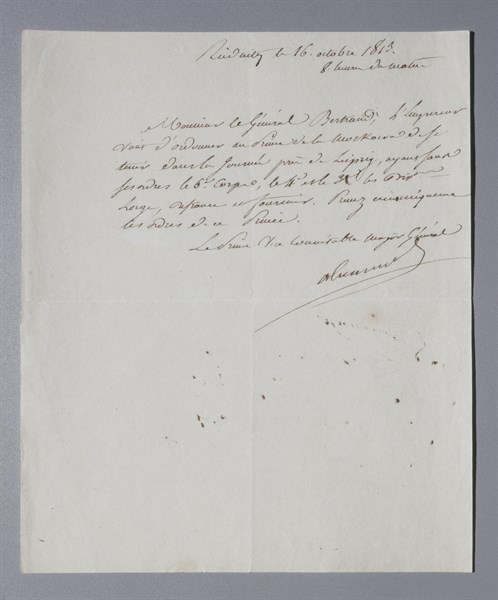 Reudnitz le 16. octobre 1813.
8 heures du matin
Monsieur le Général Bertrand, l'Empereur
vient d'ordonner au Prince de la Moskowa de se
tenir dans la journée près de Leipsig, ayant sous
ses ordres le 6e Corps, le 4e et le 3e les Divons
Lorge, defrance et fournier. Prenez en conséquence
les ordres de ce Prince.
Le Prince Vice Connétable Major Général
Alexandre